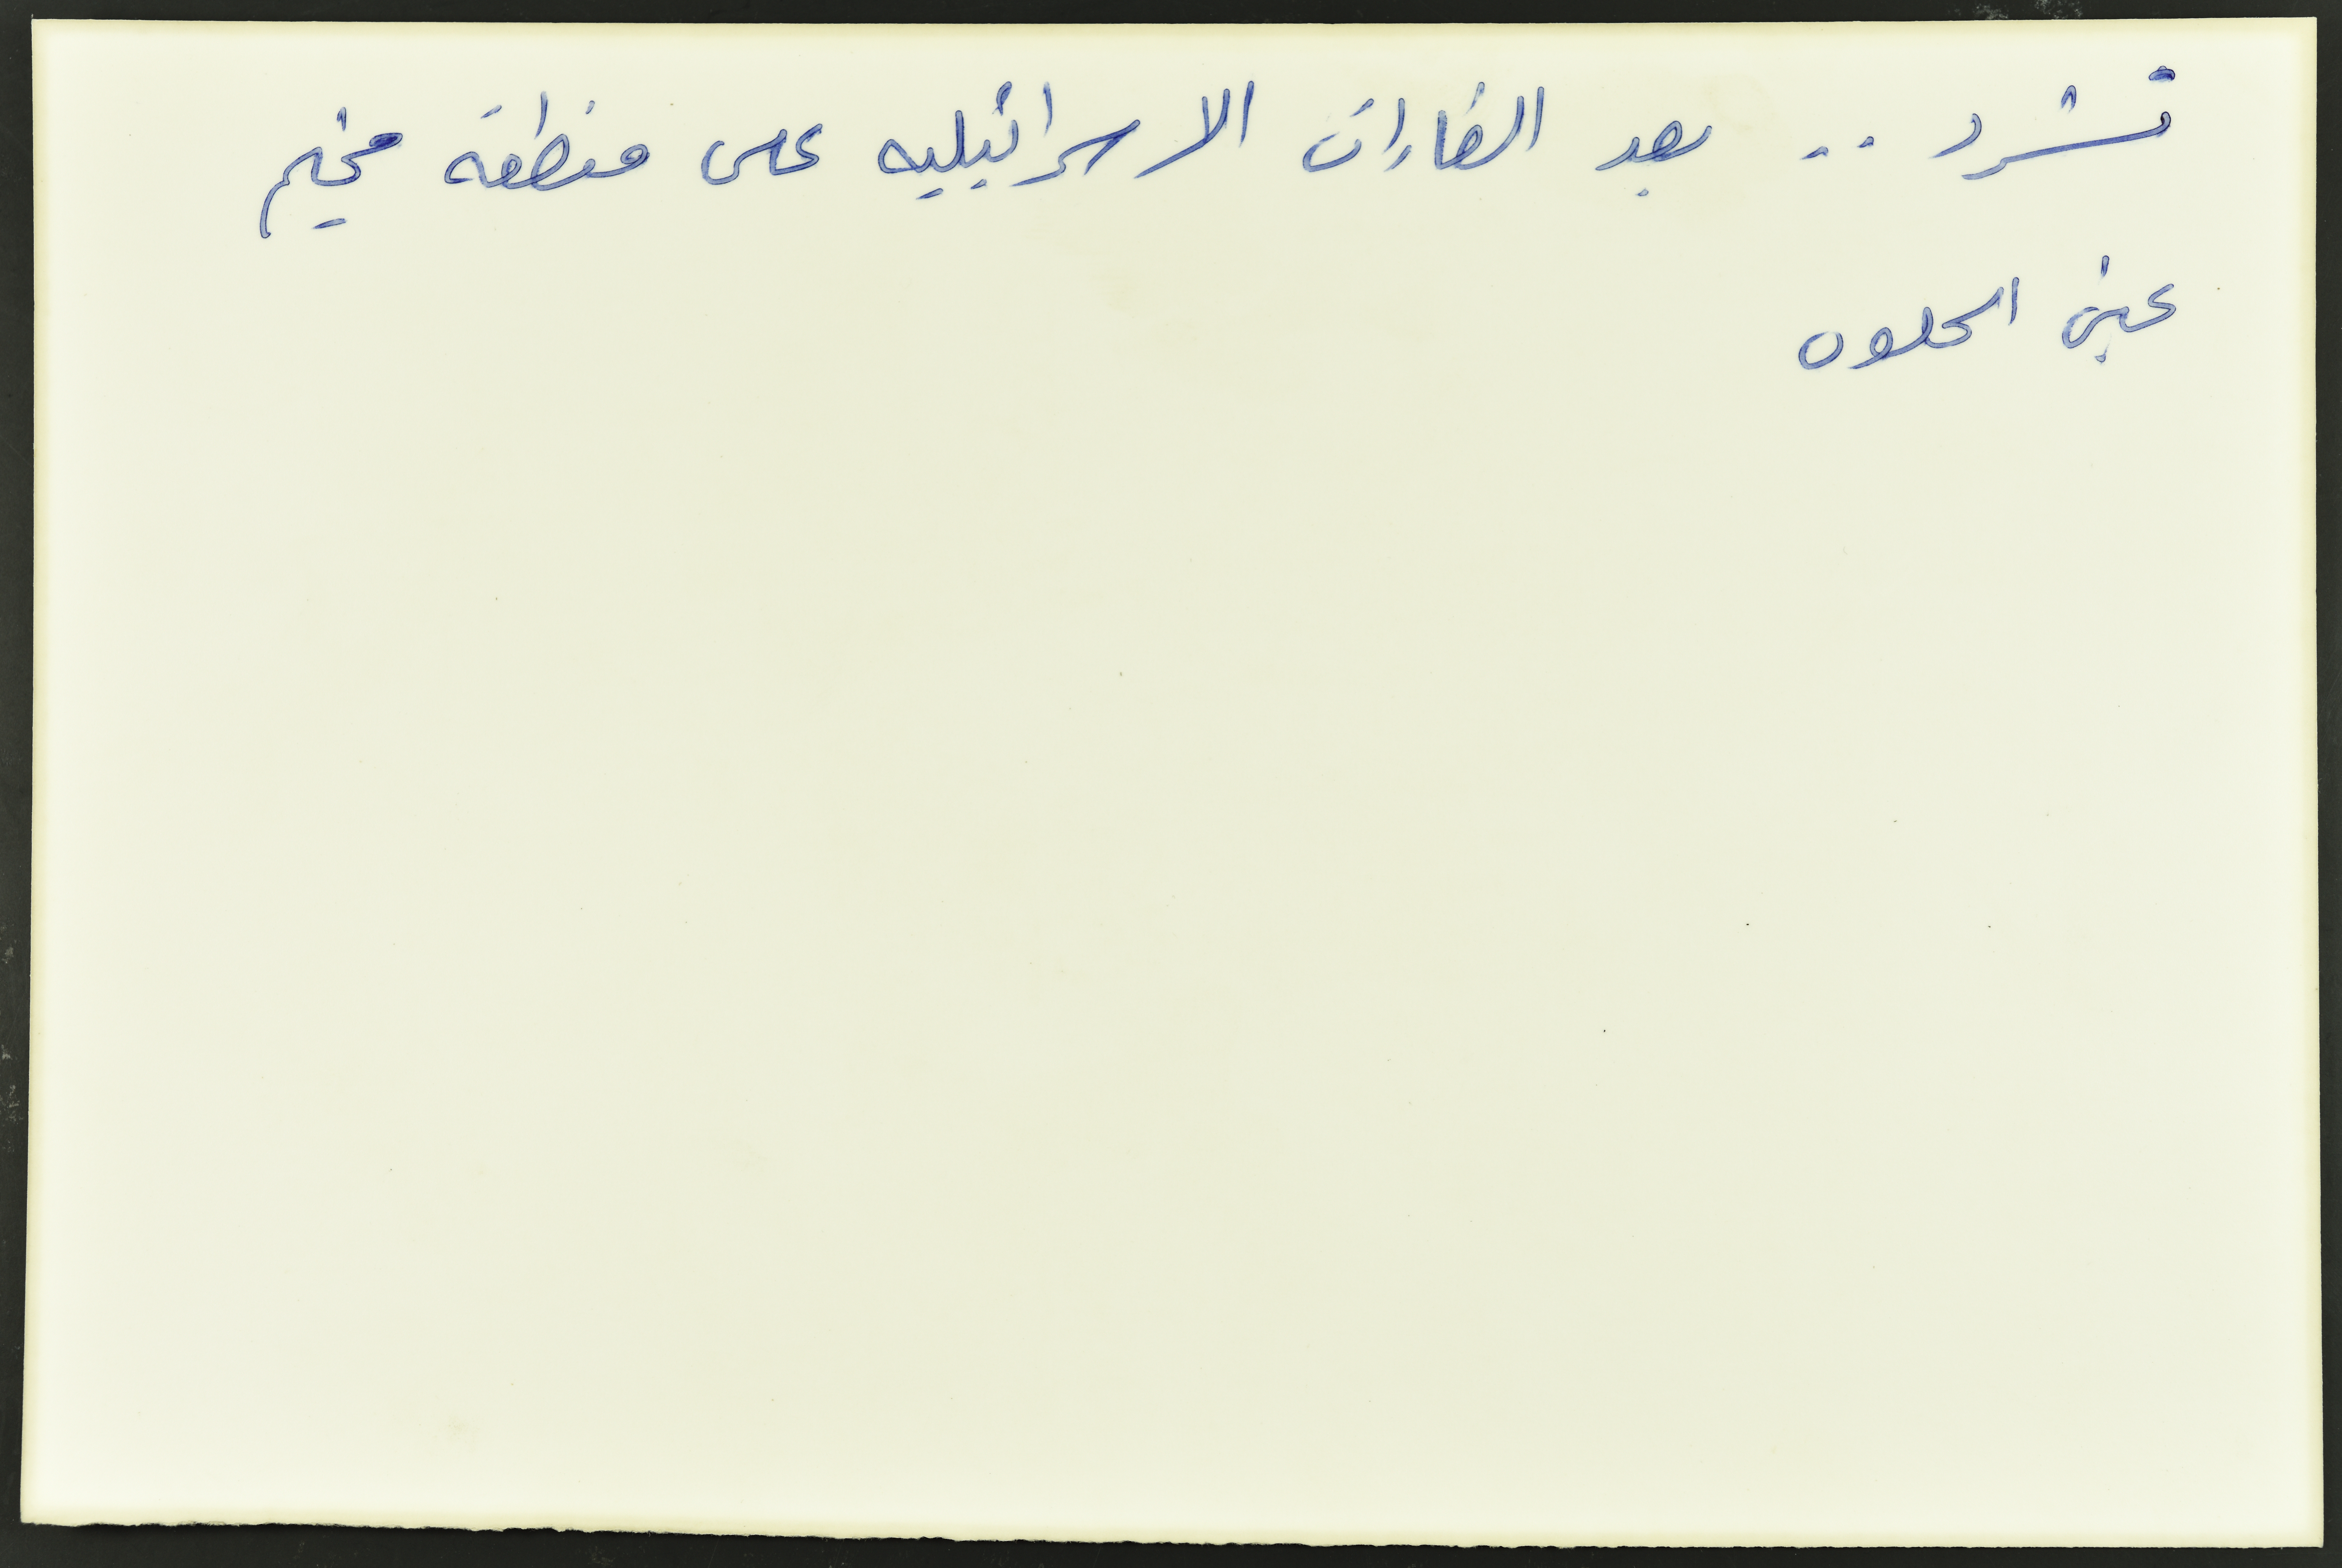 تشرد .. بعد الغارات الاسرائيليه على منطقة مخيم
عين الحلوه